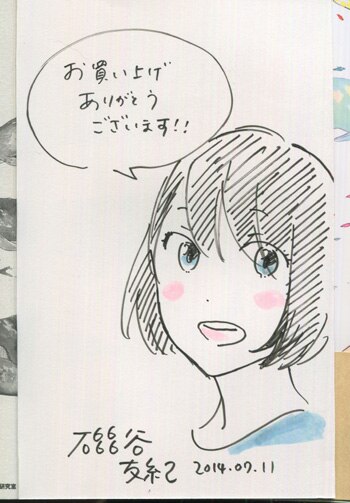 お買い上げ
ありがとう
ございます!!
磯谷
友紀 2014.07.11
研究室